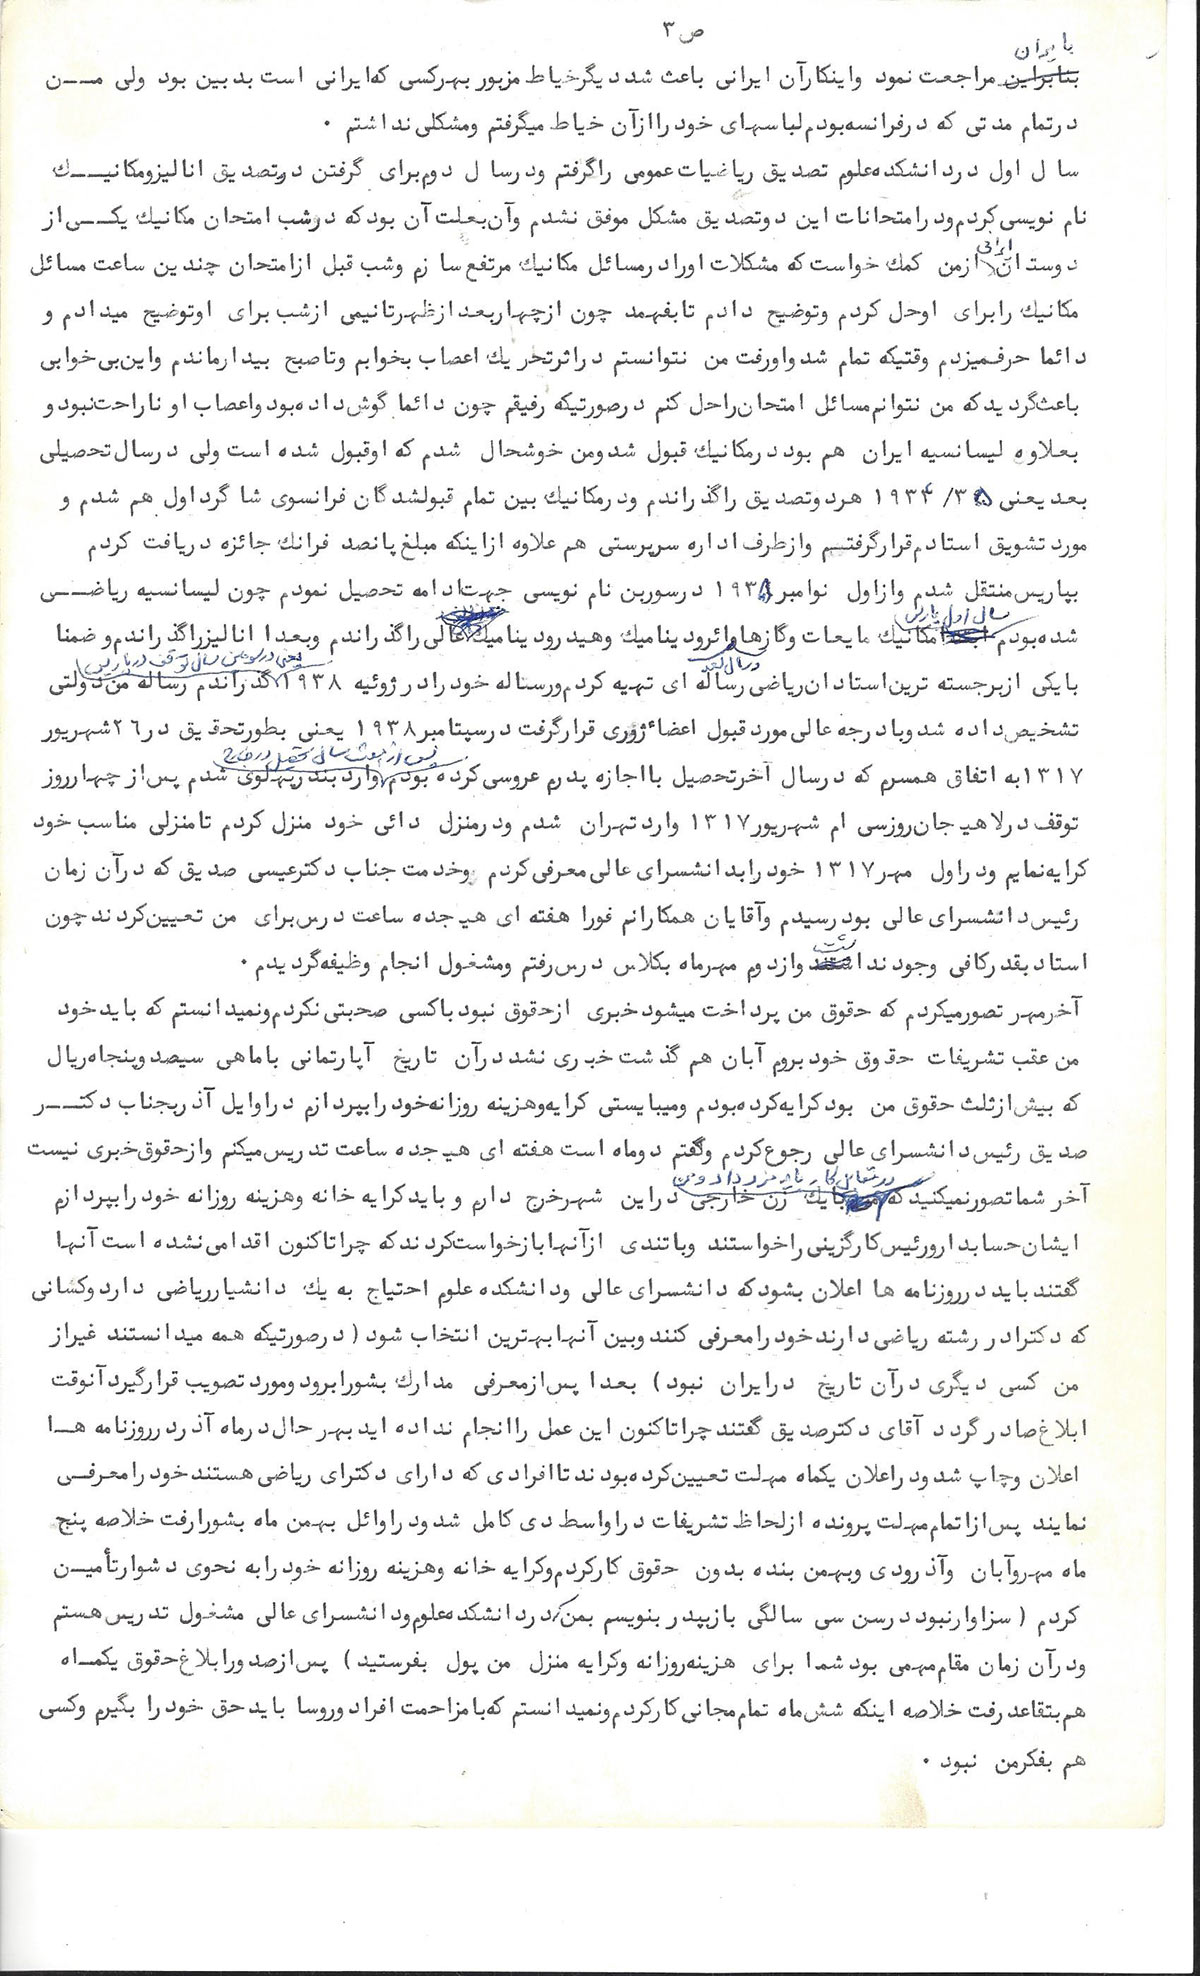 ص ۳
بایران
مراجعت نمود واینکارآن ایرانی باعث شد دیگرخیاط مزبور بهرکسی که ایرانی است بدبین بود ولی من
درتمام مدتی که درفرانسه بودم لباسهای خود را ازآن خیاط میگرفتم ومشکلی نداشتم ۰
سال اول در دانشکده علوم تصدیق ریاضیات عمومی راگرفتم ودرسال دوم برای گرفتن دوتصدیق انالیزومکانیک
نام نویسی کردم ودرامتحانات این دوتصدیق مشکل موفق نشدم وآن بعلت آن بود که درشب امتحان مکانیک یکی از
دوستان ایرانی ازمن کمک خواست که مشکلات اورادرمسائل مکانیک مرتفع سازم وشب قبل ازامتحان چندین ساعت مسائل
مکانیک رابرای اوحل کردم وتوضیح دادم تابفهمد چون ازچهاربعدازظهرتانیمی ازشب برای اوتوضیح میدادم و
دائما حرف میزدم وقتیکه تمام شد واورفت من نتوانستم دراثرتحریک اعصاب بخوابم وتاصبح بیدارماندم واین بی خوابی
باعث گردید که من نتوانم مسائل امتحان راحل کنم درصورتیکه رفیقم چون دائما گوش داده بود واعصاب او ناراحت نبود و
بعلاوه لیسانسیه ایران هم بود درمکانیک قبول شد ومن خوشحال شدم که اوقبول شده است ولی درسال تحصیلی
بعد یعنی ۱۹۳۴/۳۵ هردوتصدیق راگذراندم ودرمکانیک بین تمام قبولشدگان فرانسوی شاگرد اول هم شدم و
مورد تشویق استادم قرارگرفتم وازطرف اداره سرپرستی هم علاوه ازاینکه مبلغ پانصد فرانک جائزه دریافت کردم
بپاریس منتقل شدم وازاول نوامبر ۱۹۳۵ درسوربن نام نویسی جهت ادامه تحصیل نمودم چون لیسانسیه ریاضی
شده بودم سال اول پاریس مکانیک مایعات وگازها وائرودینامیک وهیدرودینامیک عالی راگذراندم وبعدا انالیزراگذراندم و ضمنا
بایکی ازبرجسته ترین استادان ریاضی درسال بعد رساله ای تهیه کردم ورساله خود را درژوئیه ۱۹۳۸ یعنی درسومین سال توقف درپاریس گذراندم رساله من دولتی
تشخیص داده شد وبادرجه عالی مورد قبول اعضاء ژوری قرارگرفت درسپتامبر ۱۹۳۸ یعنی بطورتحقیق در ۲۶ شهریور
۱۳۱۷ به اتفاق همسرم که درسال آخرتحصیل بااجازه پدرم عروسی کرده بودم پس از سال تحصیل درخارج وارد بندرپهلوی شدم پس از چهار روز
توقف درلاهیجان روزسی ام شهریور ۱۳۱۷ وارد تهران شدم ودرمنزل دائی خود منزل کردم تامنزلی مناسب خود
کرایه نمایم ودراول مهر ۱۳۱۷ خود رابدانشسرای عالی معرفی کردم وخدمت جناب دکترعیسی صدیق که درآن زمان
رئیس دانشسرای عالی بود رسیدم وآقایان همکارانم فورا هفته ای هیجده ساعت درس برای من تعیین کردند چون
استاد بقدرکافی وجود نداشت وازدوم مهرماه بکلاس درس رفتم ومشغول انجام وظیفه گردیدم ۰
آخرمهر تصورمیکردم که حقوق من پرداخت میشود خبری ازحقوق نبود باکسی صحبتی نکردم ونمیدانستم که باید خود
من عقب تشریفات حقوق خود بروم آبان هم گذشت خبری نشد درآن تاریخ آپارتمانی باماهی سیصد وپنجاه ریال
که بیش ازثلث حقوق من بود کرایه کرده بودم ومیبایستی کرایه وهزینه روزانه خود رابپردازم دراوایل آذر بجناب دکتر
صدیق رئیس دانشسرای عالی رجوع کردم وگفتم دوماه است هفته ای هیجده ساعت تدریس میکنم وازحقوق خبری نیست
آخر شما تصورنمیکنید که درمقابل کار باید مزد داد ومن بایک زن خارجی دراین شهرخرج دارم و باید کرایه خانه وهزینه روزانه خود رابپردازم
ایشان حسابدارورئیس کارگزینی راخواستند وباتندی ازآنها بازخواست کردند که چراتاکنون اقدامی نشده است آنها
گفتند باید درروزنامه ها اعلان بشود که دانشسرای عالی ودانشکده علوم احتیاج به یک دانشیارریاضی دارد وکسانی
که دکترادر رشته ریاضی دارند خود رامعرفی کنند وبین آنها بهترین انتخاب شود ( درصورتیکه همه میدانستند غیراز
من کسی دیگری درآن تاریخ درایران نبود ) بعدا پس ازمعرفی مدارک بشورا برود ومورد تصویب قرارگیرد آنوقت
ابلاغ صادر گردد آقای دکترصدیق گفتند چراتاکنون این عمل راانجام نداده اید بهرحال درماه آذر درروزنامه ها
اعلان وچاپ شد ودراعلان یکماه مهلت تعیین کرده بودند تاافرادی که دارای دکترای ریاضی هستند خود رامعرفی
نمایند پس ازاتمام مهلت پرونده ازلحاظ تشریفات دراواسط دی کامل شد ودراوائل بهمن ماه بشورا رفت خلاصه پنج
ماه مهروآبان وآذرودی وبهمن بنده بدون حقوق کارکردم وکرایه خانه وهزینه روزانه خود رابه نحوی دشوارتأمین
کردم ( سزاوار نبود درسن سی سالگی بازبپدر بنویسم بمن که دردانشکده علوم ودانشسرای عالی مشغول تدریس هستم
ودرآن زمان مقام مهمی بود شما برای هزینه روزانه وکرایه منزل من پول بفرستید ) پس ازصدورابلاغ حقوق یکماه
هم بتقاعد رفت خلاصه اینکه شش ماه تمام مجانی کارکردم ونمیدانستم که بامزاحمت افراد وروسا باید حق خود را بگیرم وکسی
هم بفکرمن نبود ۰